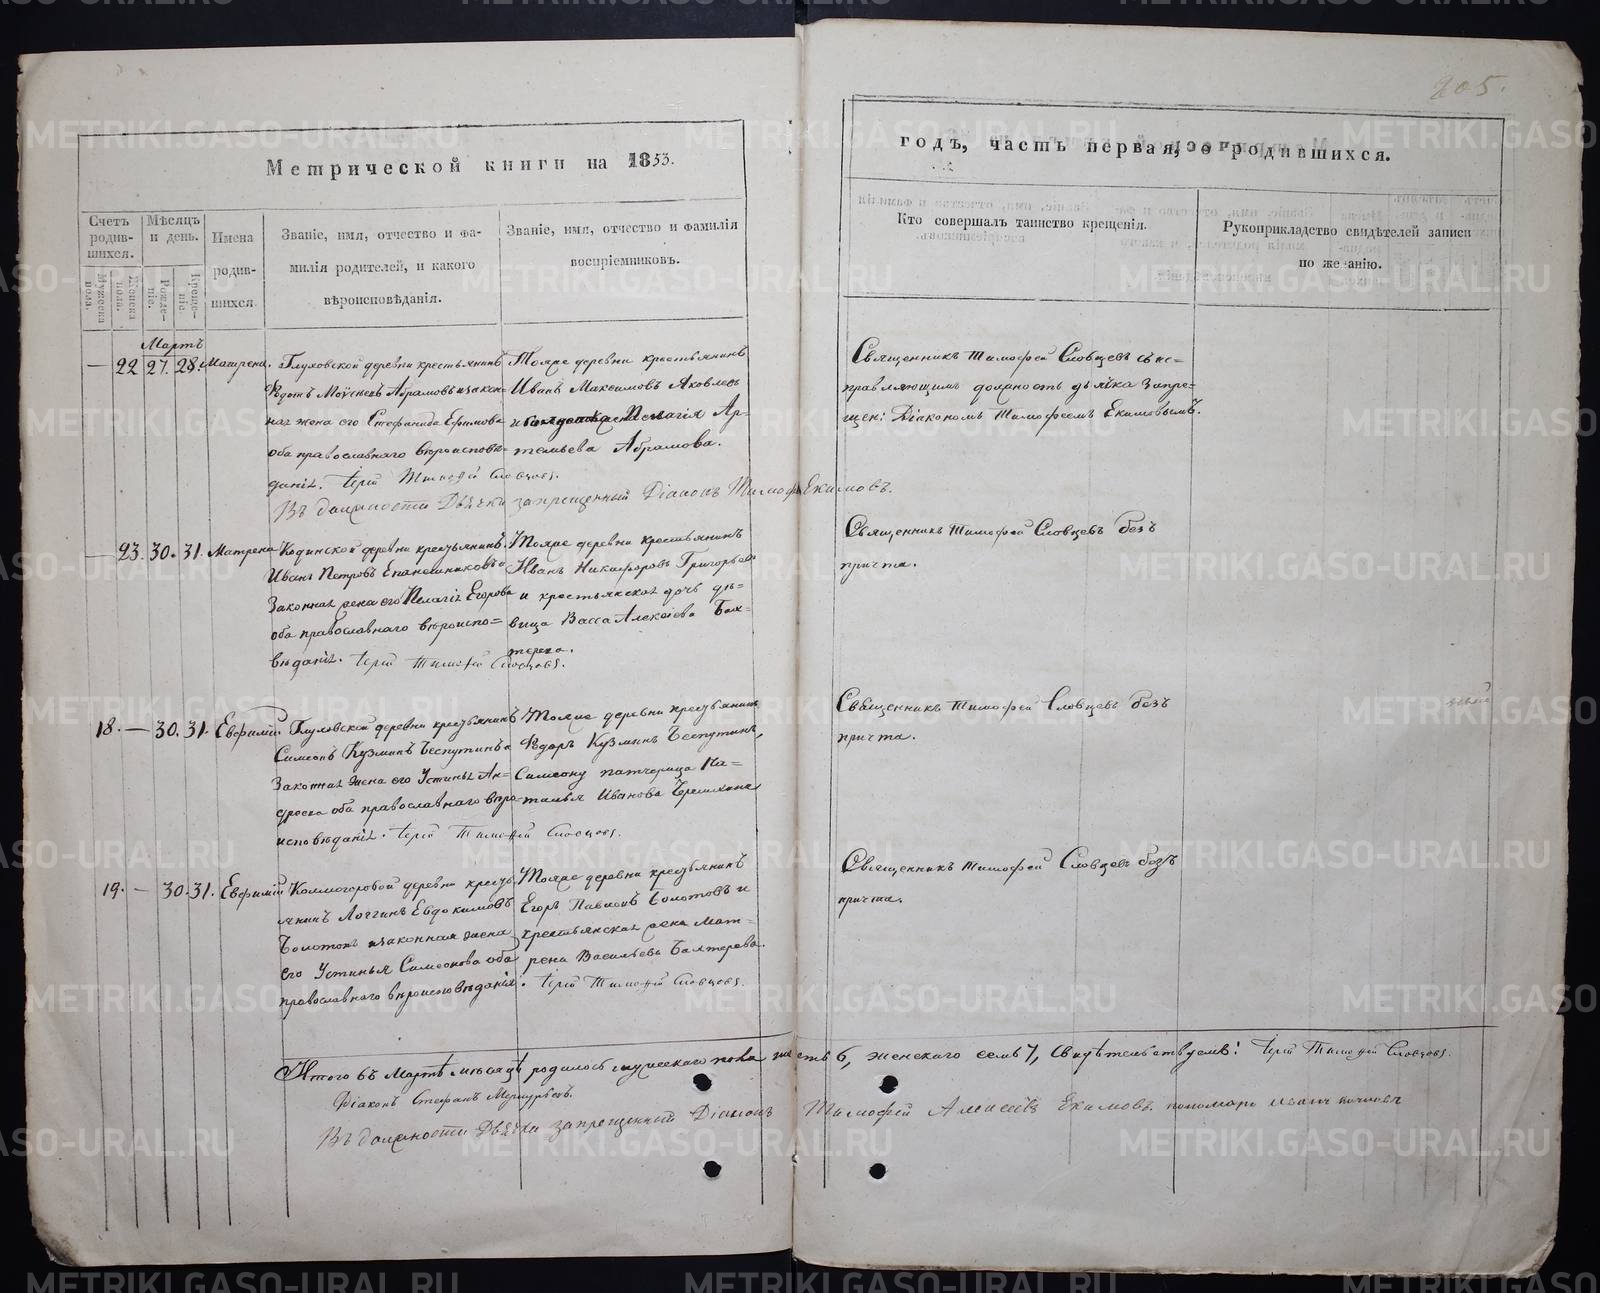 205.
Метрической книги на 1853.
годъ, часть первая, о родившихся.
Счетъ родив-шихся.
Мѣсяцъ и день.
Имена родив-шихся
Званіе, имя, отчество и фа-
милія родителей, и какого
вѣроисповѣданія.
Званіе, имя, отчество и фамилія
воспріемниковъ.
Кто совершалъ таинство крещенія.
Рукоприкладство свидѣтелей записи
по желанію.
Мужеска пола.
Женска пола.
Рожде-ніе.
Креще-ніе.
Мартъ
— 22 27. 28. Матрена.
Глуховской деревни крестьянинъ
Ѳедотъ Моѵсеевъ Абрамовъ и закон-
ная жена его Стефанида Ефимова
оба православнаго вѣроисповѣ-
данія. Іерей Тимофей Словцовъ.
Тояже деревни крестьянинъ
Иванъ Максимовъ Яковлевъ
и Пелагія Ар-
темьева Абрамова.
Въ должности Дьячка запрещенный Діаконъ Тимофей Екимовъ.
Священникъ Тимофей Словцевъ съ ис-
правляющимъ должность дьячка запре-
щен: Діакономъ Тимофеемъ Екимовымъ.
— 23. 30. 31. Матрена
Кодинской деревни крестьянинъ
Иванъ Петровъ Епанешниковъ и
Законная жена его Пелагія Егорова
оба православнаго вѣроиспо-
вѣданія. Іерей Тимофей Словцовъ.
Тояже деревни крестьянинъ
Иванъ Никифоровъ Григорьевъ
и крестьянская дочь дѣ-
вица Васса Алексіева Бах-
терева.
Священникъ Тимофей Словцевъ безъ
причта.
18. — 30. 31. Евфимій
Глуховской деревни крестьянинъ
Симеонъ Кузминъ Беспутинъ и
Законная жена его Устинья Ан-
дреева оба православнаго вѣро-
исповѣданія. Іерей Тимофей Словцовъ.
Тояже деревни крестьянинъ
Ѳедоръ Кузминъ Беспутинъ,
Симеону патчерица На-
талья Иванова
Священникъ Тимофей Словцевъ безъ
причта.
19. — 30. 31. Евфимій
Колмогоровой деревни кресть-
янинъ Логгинъ Евдокимовъ
Болотовъ и законная жена
его Устинья Симеонова оба
православнаго вѣроисповѣданія.
Тояже деревни крестьянинъ
Егоръ Павловъ Болотовъ и
крестьянская жена Мат-
рена Васильева Бахтерева.
Іерей Тимофей Словцовъ.
Священникъ Тимофей Словцевъ безъ
причта.
Итого въ Мартѣ мѣсяцѣ родилось мужескаго пола шесть 6, женскаго семь 7, Свидѣтельствуемъ: Іерей Тимофей Словцовъ.
Діаконъ Стефанъ Меркурьевъ.
Въ должности Дьячка запрещенный Діаконъ Тимофей Алексіевъ Екимовъ. пономарь Иванъ
METRIKI.GASO-URAL.RU